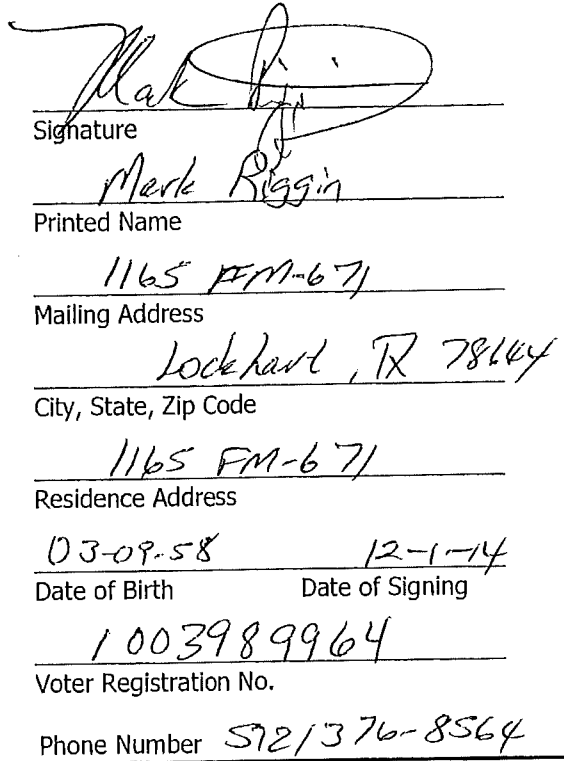 Mark Riggin
Signature
Mark Riggin
Printed Name
1165 FM-671
Mailing Address
Lockhart, TX 78644
City, State, Zip Code
1165 FM-671
Residence Address
03-09-58 12-1-14
Date of Birth Date of Signing
1003989964
Voter Registration No.
Phone Number 512/376-8564